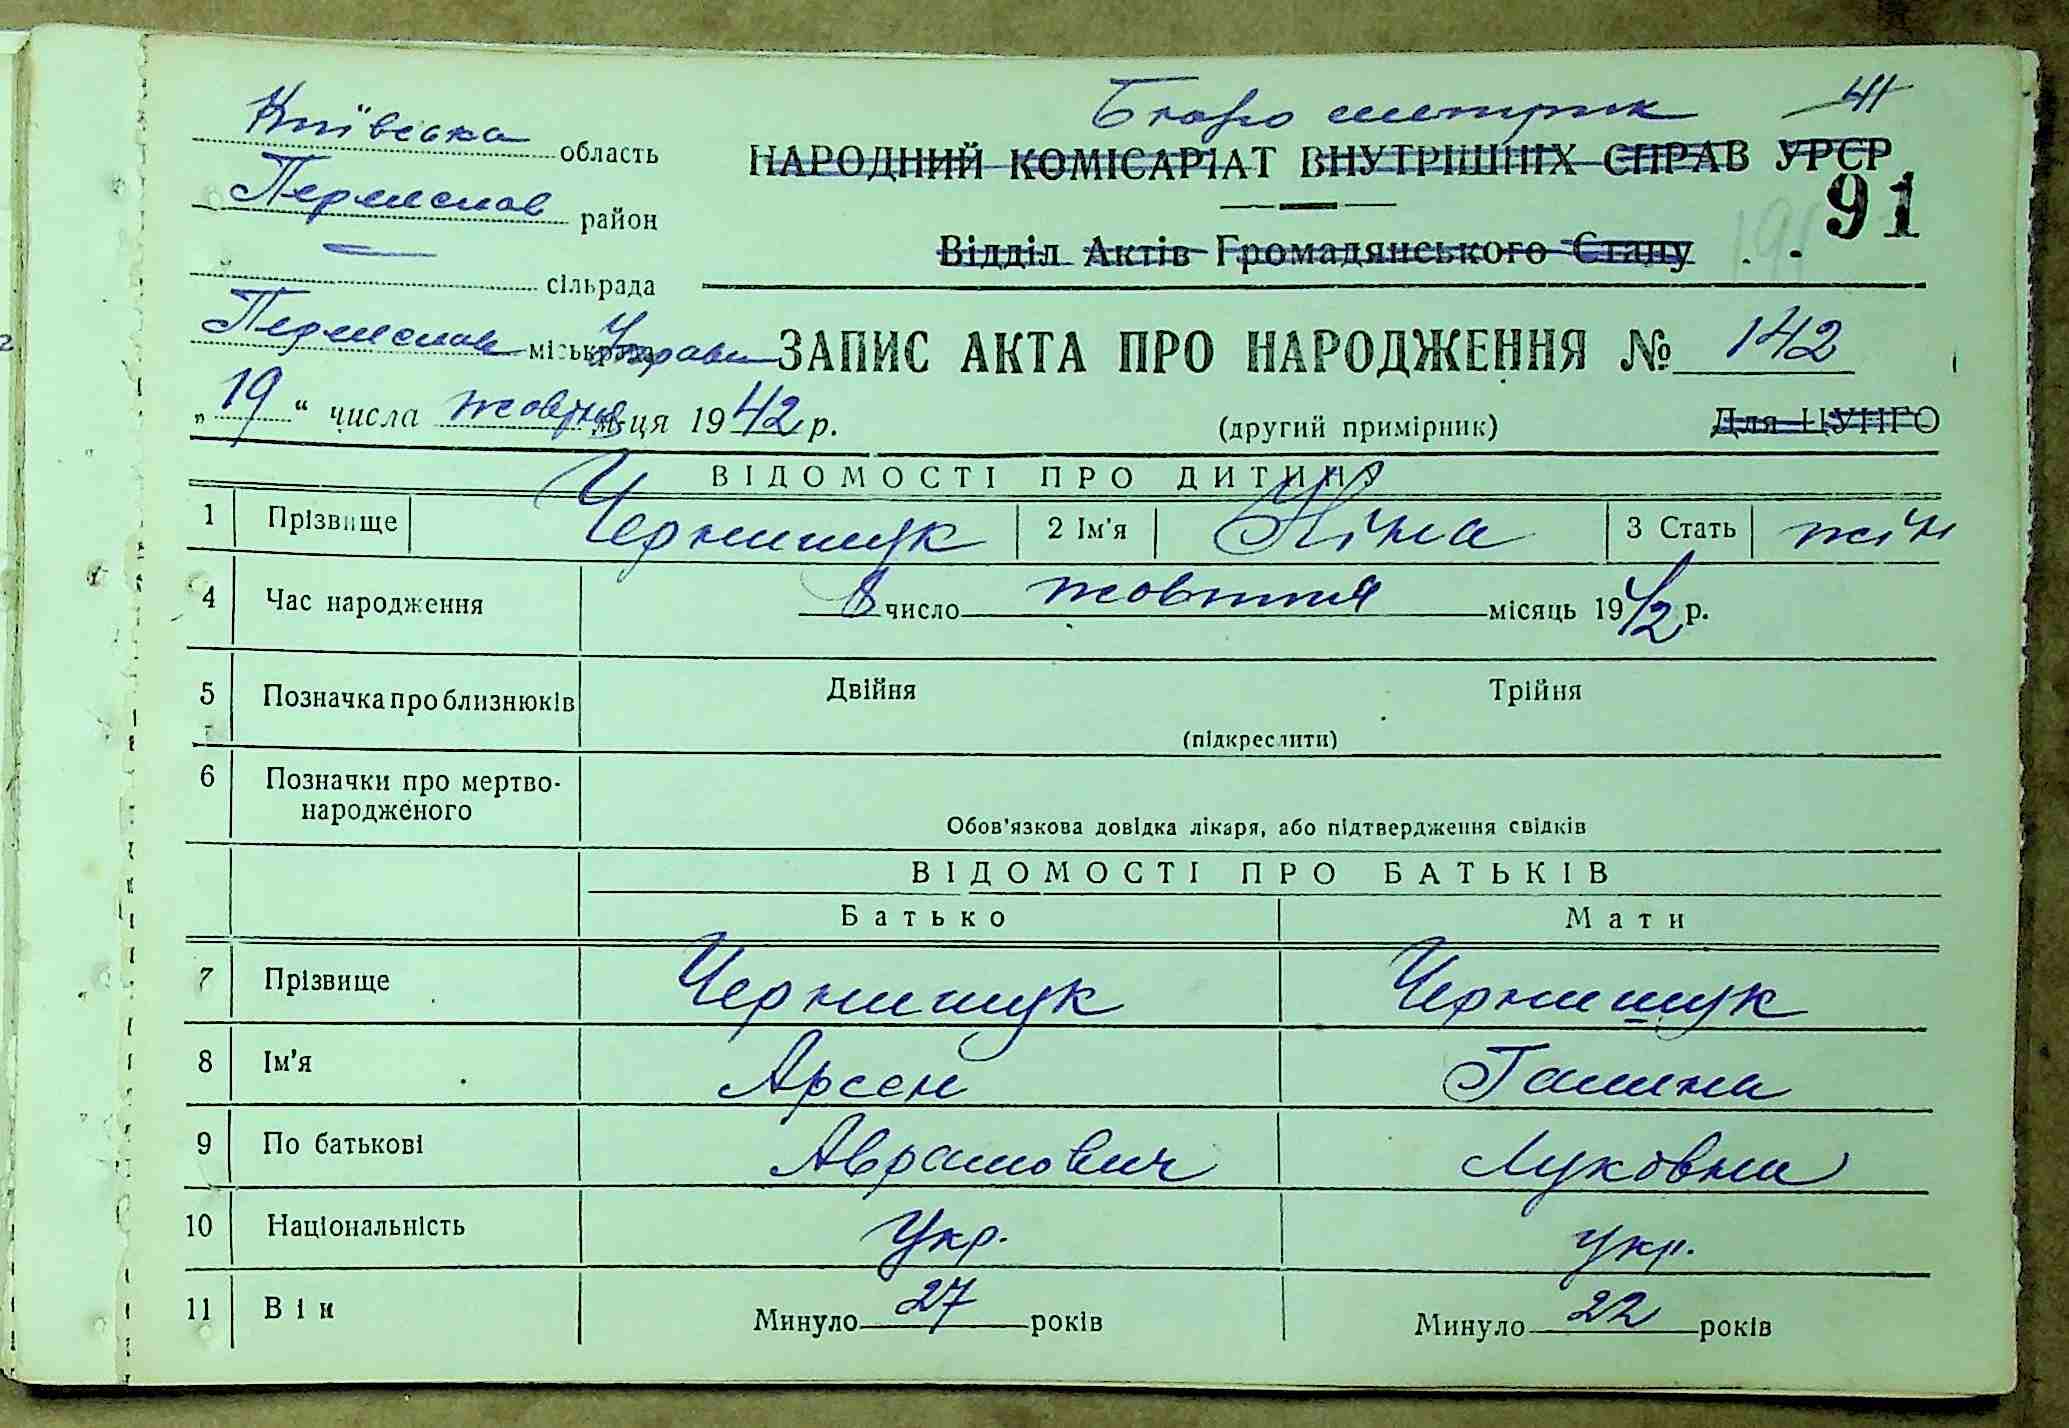 Київська область
Переяслав район
— сільрада
Переяслав міськрада Управи
„19“ числа жовтня м-ця 1942 р.
Бюро метрик 41
НАРОДНИЙ КОМІСАРІАТ ВНУТРІШНІХ СПРАВ УРСР
91
Відділ Актів Громадянського Стану
ЗАПИС АКТА ПРО НАРОДЖЕННЯ № 142
(другий примірник) Для ЦУНГО
ВІДОМОСТІ ПРО ДИТИНУ
1 Прізвище Чернишук 2 Ім'я Ніна 3 Стать жін
4 Час народження 8 число жовтня місяць 1942 р.
5 Позначка про близнюків Двійня Трійня
(підкреслити)
6 Позначки про мертво-
народженого
Обов'язкова довідка лікаря, або підтвердження свідків
ВІДОМОСТІ ПРО БАТЬКІВ
Батько Мати
7 Прізвище Чернишук Чернишук
8 Ім'я Арсен Галина
9 По батькові Аврамович Луковна
10 Національність Укр. укр.
11 Вік Минуло 27 років Минуло 22 років